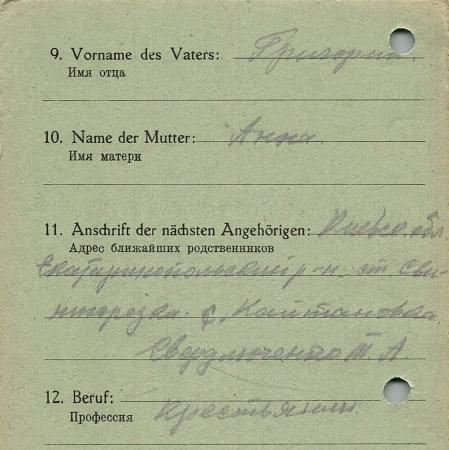 9. Vorname des Vaters: Григорий
Имя отца
10. Name der Mutter: Анна.
Имя матери
11. Anschrift der nächsten Angehörigen: Киевск. обл.
Адрес ближайших родственников
Екатеринопольский р-н ст Сви-
нторезка. с.
12. Beruf: крестьянин
Профессия